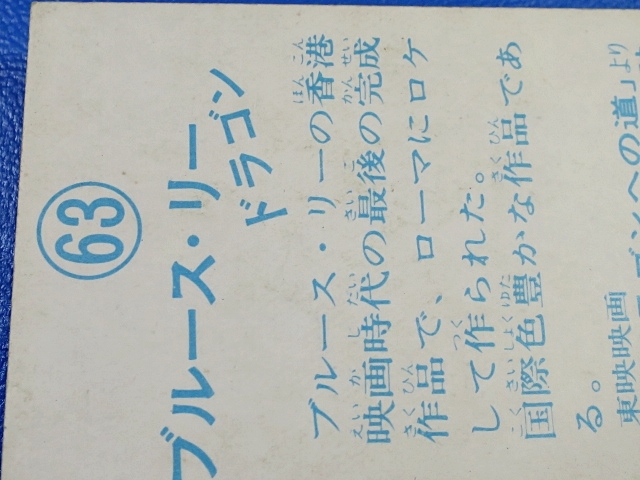 63
ブルース・リー
ドラゴン
ブルース・リーの香港
映画時代の最後の完成
作品で、ローマにロケ
して作られた。
国際色豊かな作品であ
る。
東映映画
ゴンへの道」より